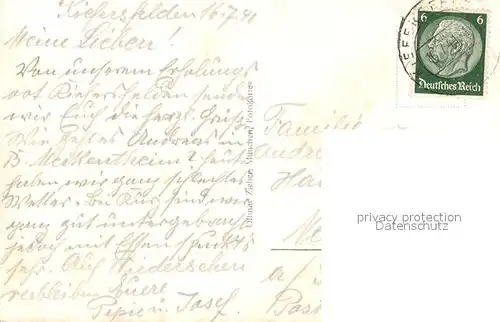 Kiefersfelden 16.7.41
Meine Lieben!
Von unserem Erholungs
ort Kiefersfelden senden
wir Euch die herzl. Grüße
Wie geht es Andreas in
B. Meckenheim? heute
haben wir ganz schlechtes
Wetter. Bei Kurz sind wir
ganz gut untergebracht
jedoch mit Essen spuckt's
sehr. Auf Wiedersehen
verbleiben Euere
Pepi u. Josef.
Ottmar Zieher, München,
Famili
Andre
Ha
6 6
Deutsches Reich
privacy protection
Datenschutz